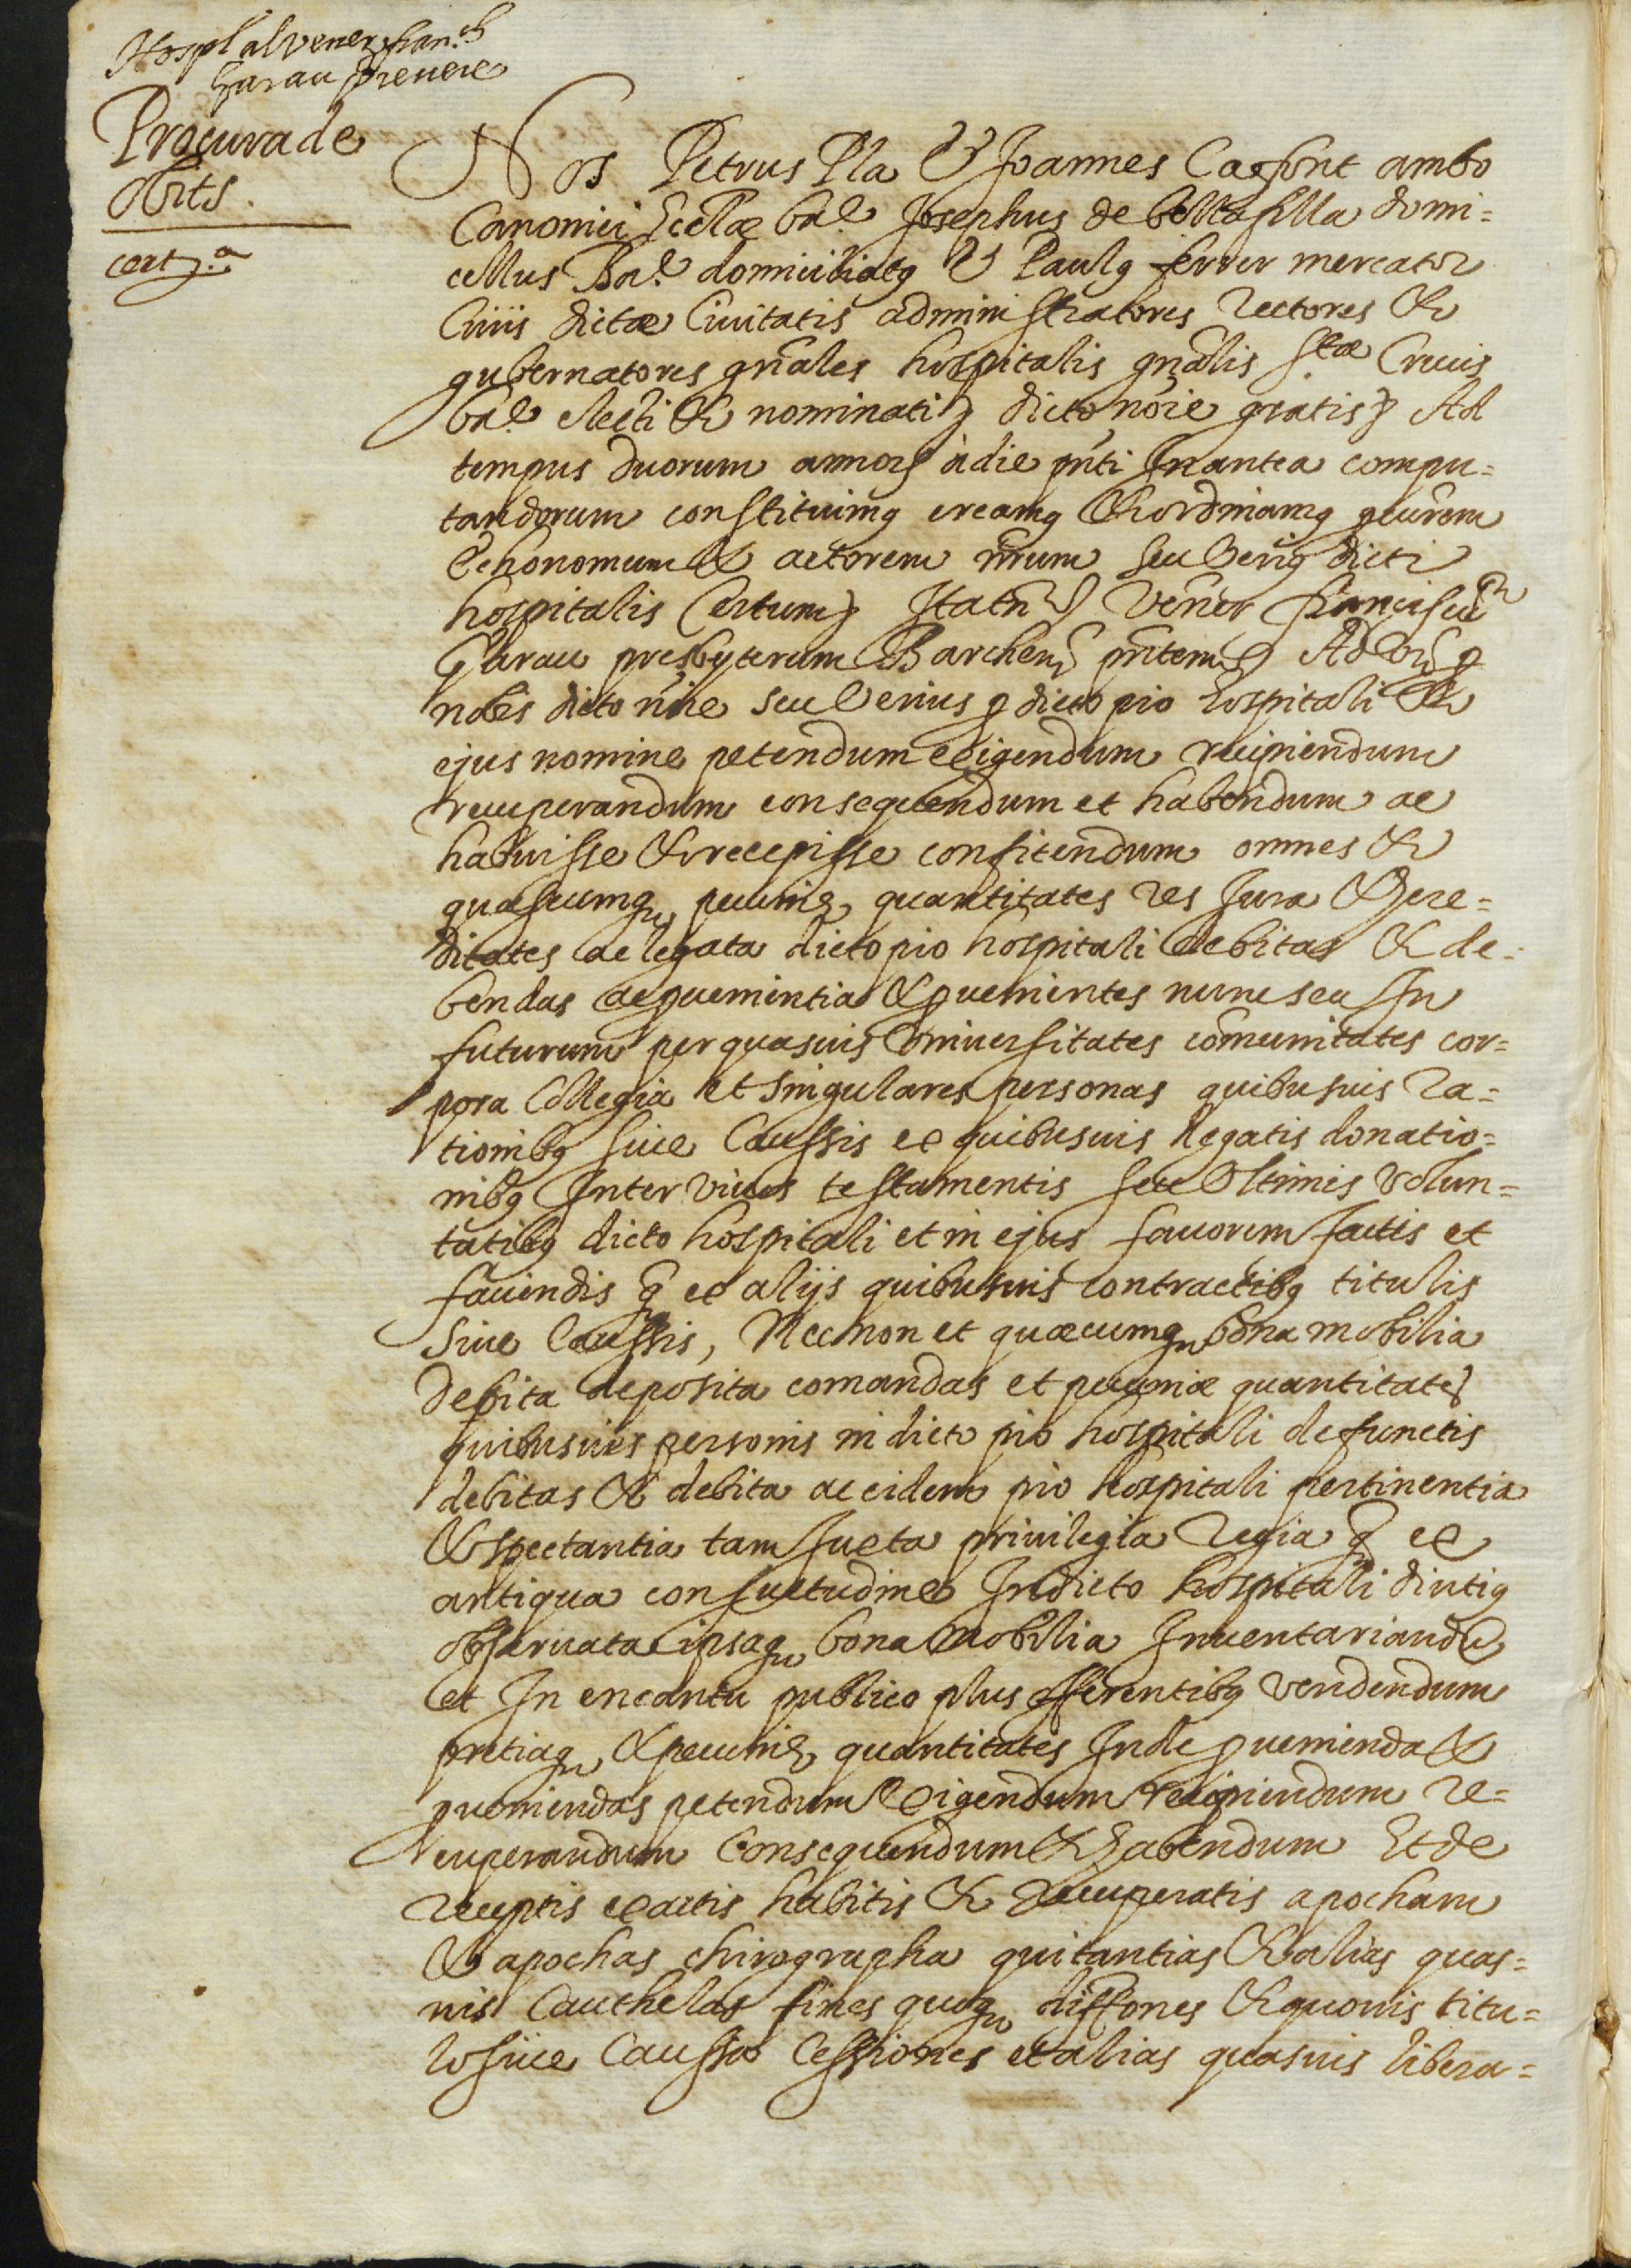 Hospl al vener. fran.ch
Garau prevere
Procura de
obits.
cert.ª
Nos Petrus Pla & Joannes Cafont ambo
Canonici Eccłæ Bał Josephus de bellafilla domi=
cellus Bał domiciliatꝯ & Paulꝯ ferrer mercator
Civis dictæ Civitatis administratores rectores &
gubernatores gñales hospitalis gñalis Stæ Crucis
Bał electi & nominati dicto nõie gratis Ad
tempus duorum annor à die pñti In antea compu=
tandorum constituimꝯ creamꝯ & ordinamꝯ ꝓcurem
Echonomum & actorem nrum seu veriꝯ dicti
hospitalis Certum Ita tñ Vener Franciscũ
Garau presbyterum Barchen pñtem Ad ꝑ
nobis dicto nõie seu verius ꝑ dicto pio hospitali &
ejus nomine petendum exigendum recipiendum
recuperandum consequendum et habendum ac
habuisse & recepisse confitendum omnes &
quascumqȝ pecuniæ quantitates res Jura & here=
ditates ac legata dicto pio hospitali debitas & de=
bendas ac ꝓvenientia & ꝓvenientes nunc seu In
futurum per quasvis Universitates comunitates cor=
pora Collegia et singulares personas quibusvis ra=
tionibꝯ sive Caussis ex quibusvis legatis donatio=
nibꝯ Inter vivos testamentis seu Ultimis volun=
tatibꝯ dicto hospitali et in ejus favorem factis et
faciendis q̃ ex alijs quibusvis contractibꝯ titulis
Sive Caussis, Necnon et quæcumqȝ bona mobilia
debita deposita comandas et pecuniæ quantitates
quibusvis personis in dicto pio hospitali defunctis
debitas & debita ac eidem pio hospitali pertinentia
& spectantia tam Juxta privilegia regia q̃ ex
antiqua consuetudine In dicto hospitali diutiꝯ
observata ipsaqȝ bona mobilia Inventariandũ
et In encantu publico plus offerentibꝯ vendendum
pretiaqȝ & pecuniæ quantitates Inde ꝓvenienda &
ꝓveniendas petendum exigendum recipiendum re=
cuperandum Consequendum & habendum Et de
receptis exactis habitis & recuperatis apocham
& apochas chirographa quitantias & alias quas=
vis Cauthelas fines quoqȝ diffones & quovis titu=
lo sive Caussa Cessiones et alias quasvis libera=